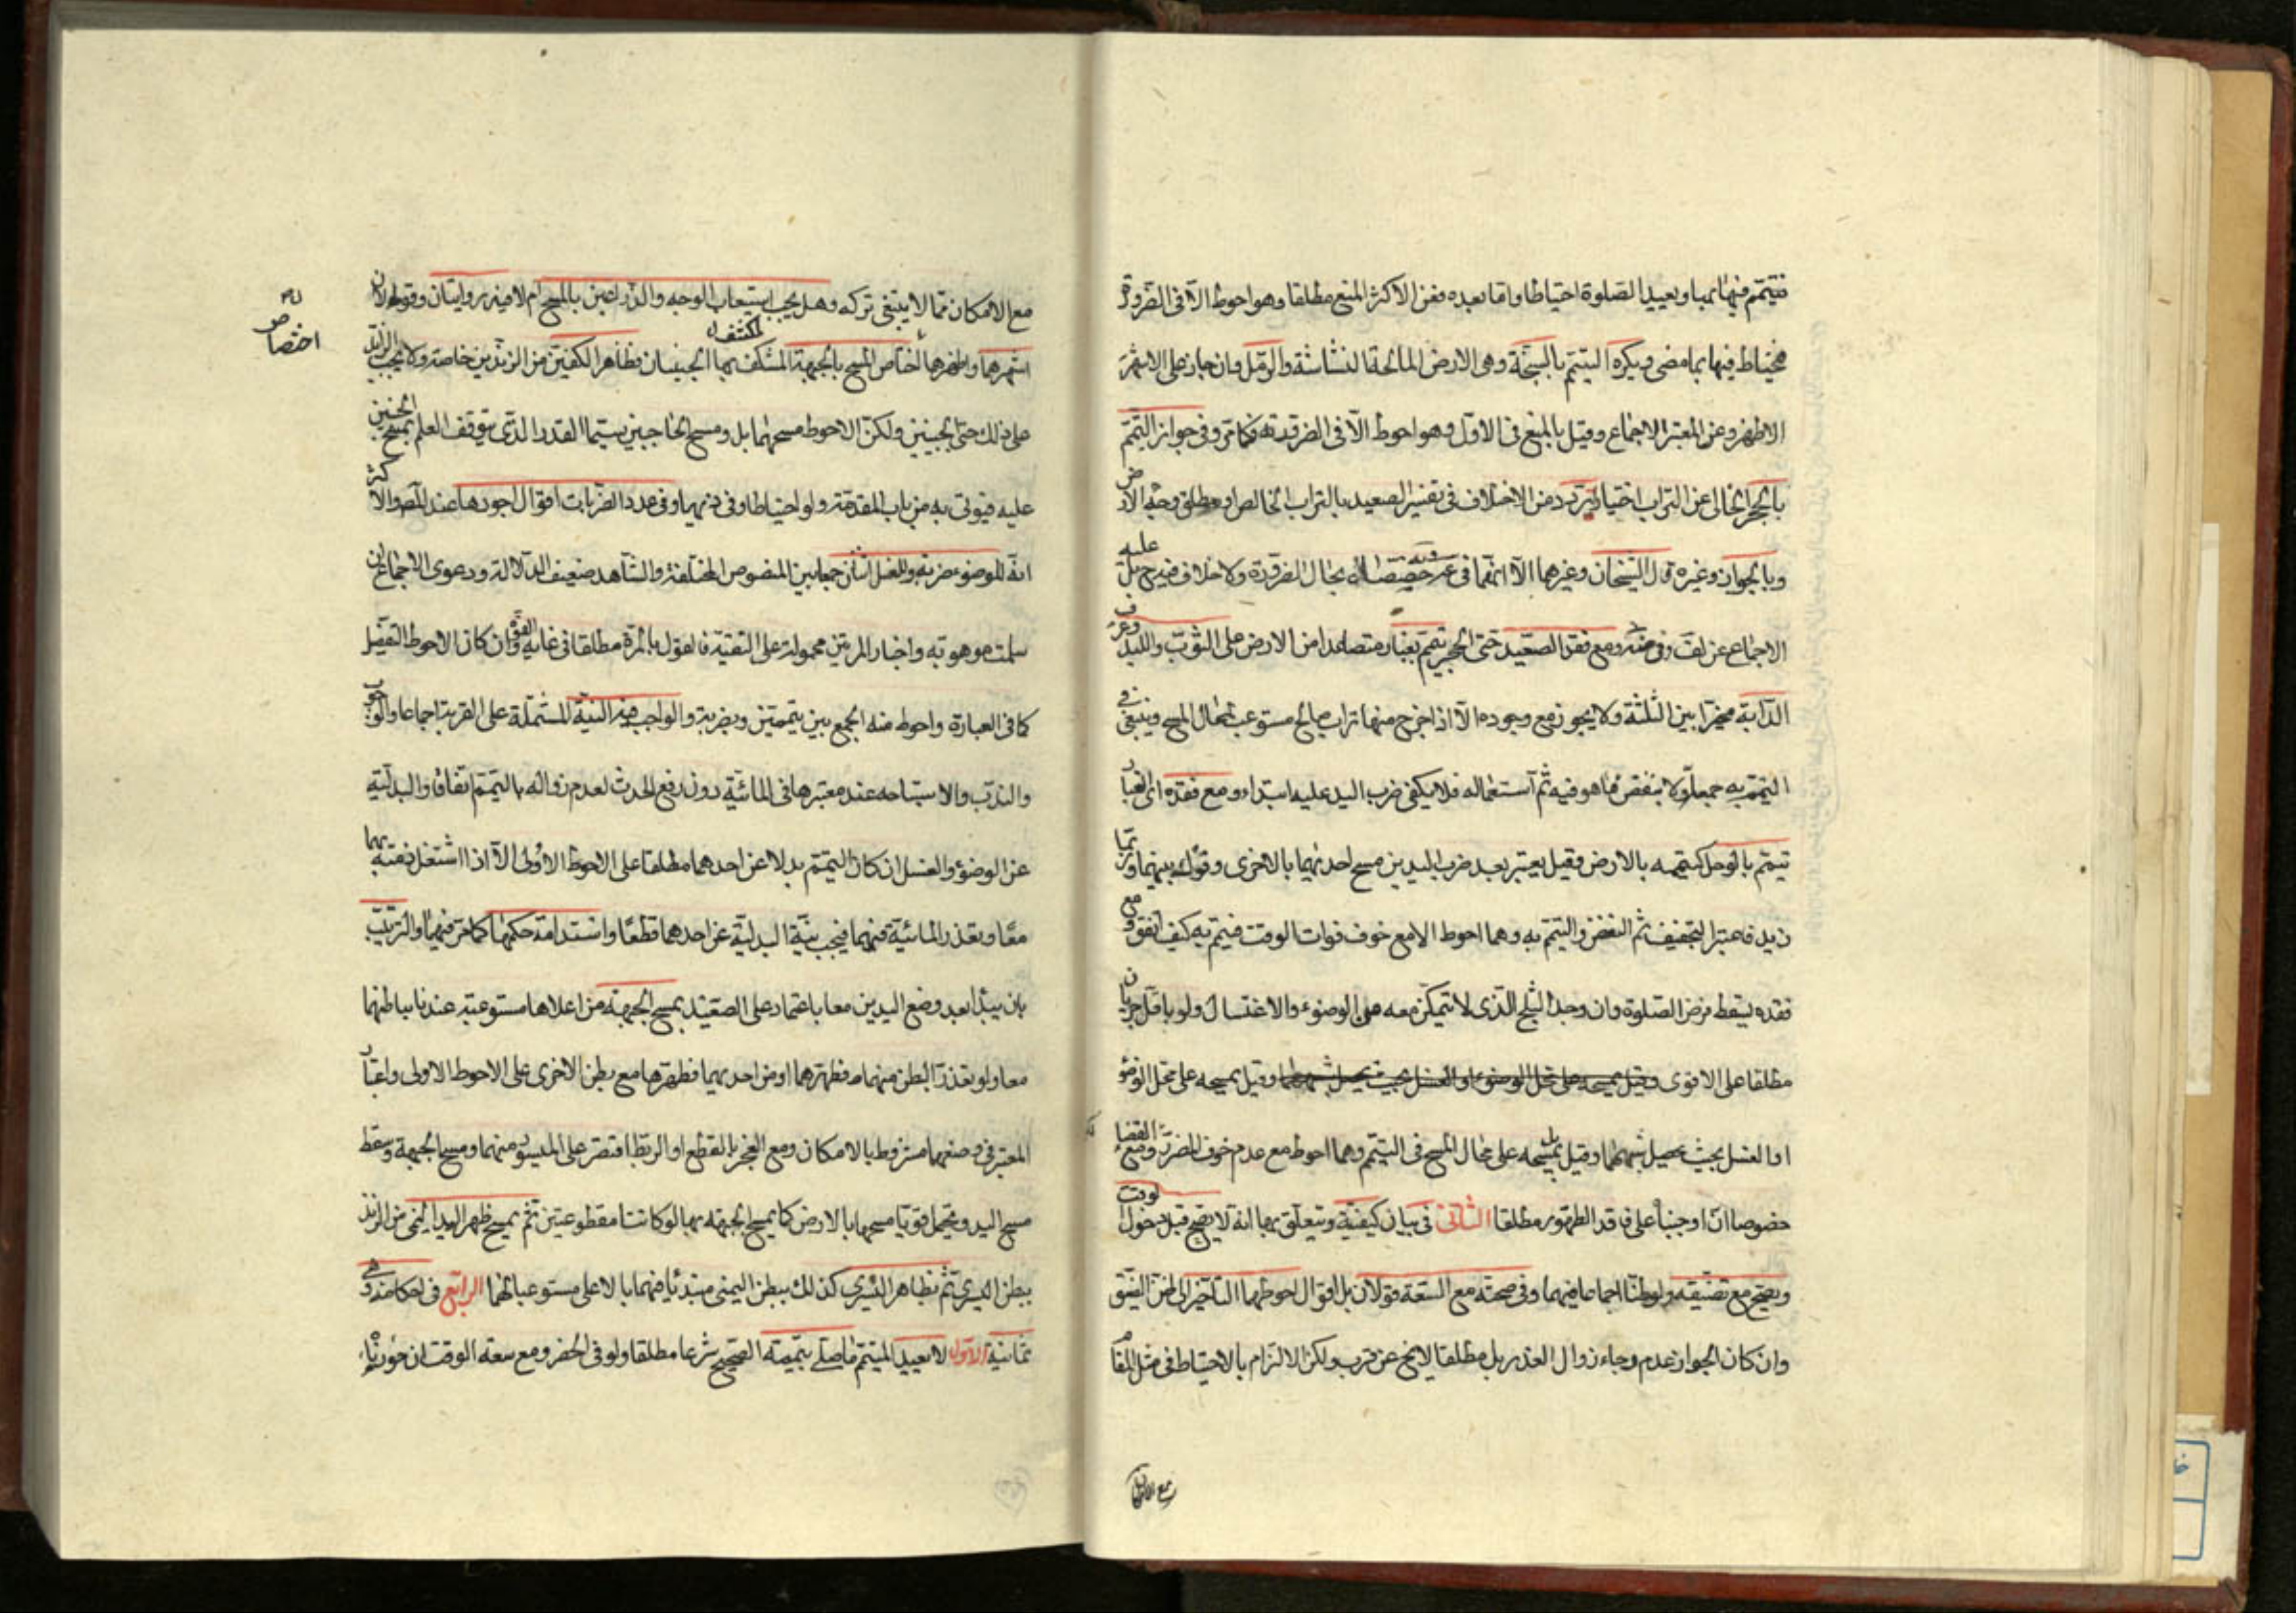 فيتيمم فيهما بها ويعيد الصلوة احتياطا واما بعده فعن الاكثر المنع مطلقا وهو احوط الا فى الضرورة
فيحتاط فيها بما مضى ويكره التيمم بالسبخة وهى الارض المالحة النشاشة والرمل وان جاز على الاشهر
الاظهر وعن المعتبر الاجماع وقيل بالمنع فى الاول وهو احوط الا فى الضرورة فكما مر وفى جواز التيمم
بالحجر الخالى عن التراب اختيارا تردد من الاختلاف فى تفسير الصعيد بالتراب الخالص او مطلق وجه الارض
وبالجواز وغيره قال الشيخان وغيرهما الا انهما فى بحال الضرورة ولا خلاف فيه ح بل عليه
الاجماع عن لف وفى ومع فقد الصعيد حتى الحجر تيمم بغبار متصاعدا من الارض على الثوب واللبد وعرف
الدابة مخيرا بين الثلثة ولا يجوز مع وجوده الا اذا خرج منها تراب صالح مستوعب لمحال المسح وينبغى فى
التيمم به جمعه اولا بنفض ما هو فيه ثم استعماله فلا يكفى ضرب اليد عليه ابتداء ومع فقده اى الغبار
تيمم بالوحل كتيممه بالارض وقيل يعتبر بعد ضرب اليدين مسح احديهما بالاخرى وقوله بينهما وربما
زيد فاعتبر التجفيف ثم النفض والتيمم به وهما احوط الا مع خوف فوات الوقت فيتيم به كيف اتفق ومع
فقده يسقط فرض الصلوة وان وجد الثلج الذى لا تيمكن معه من الوضوء والاغتسال ولو باقل جريان
مطلقا على الاقوى وقيل يمسحه على محل الوضوء
او الغسل بحيث يحصل شبههما وقيل بل يمسحه على محال المسح فى التيمم وهما احوط مع عدم خوف الضرر ومع القضاء
خصوصا ان اوجبنا على فاقد الطهور مطلقا الثانى فى بيان كيفية ويتعلق بها انه لا يصح قبل دخول الوقت
ويصح مع تضيقه ولو ظنا اجماعا فيهما وفى صحته مع السعة قولان بل اقوال احوطهما التأخير الى ظن الضيق
وان كان الجواز عدم رجاء زوال العذر بل مطلقا لا يخ عن قرب ولكن الالتزام بالاحتياط فى مثل المقام
مع الامكان
مع الامكان مما لا ينبغى تركه وهل يجب استيعاب الوجه والذراعين بالمسح ام لا فيه روايتان وقولان
اشهرهما واظهرهما اختصاص المسح بالجبهة المكتنف بها الجبينان وظاهر الكفين من الزندين خاصة ولا يجب الزائد
اختصاص
على ذلك حتى الجبينين ولكن الاحوط مسحهما بل ومسح الحاجبين سيما القدر الذى يتوقف العلم بمسح الجبين
عليه فيؤتى به من باب المقدمة ولو احتياطا وفى وفى عدد الضربات اقوال اجودها عند المص والاكثر
انه للوضوء ضربة وللغسل اثنان جمعا بين النصوص المختلفة والشاهد ضعيف الدلالة ودعوى الاجماع ان
سلمت موهونة واخبار المرتين محمولة على التقية فالقول بالمرة مطلقا فى غاية القوة وان كان الاحوط التفصيل
كما فى العبارة واحوط منه الجمع بين تيممين وبضربة والواجب فيه النية المشتملة على القربة اجماعا والوجوب
والندب والاستباحه عند معتبرها فى المائية دون رفع الحدث لعدم زواله بالتيمم اتفاقا والبدلية
عن الوضوء والغسل ان كان التيمم بدلا عن احدهما مطلقا على الاحوط الاولى الا اذا اشتغل ذمته بهما
معا وتعذر المائية فيهما فيجب نية البدلية عن احدهما قطعا واستدامة حكمها كما مر فيهما والترتيب
بان يبدا بعد وضع اليدين معا باعتماد على الصعيد بمسح الجبهة من اعلاها مستوعبة عندنا بباطنهما
معا ولو تعذر البطن منهما فظهرهما او من احديهما فظهرها مع بطن الاخرى على الاحوط الاولى واعتبار
المعتبر فى وضعهما مشروط بالامكان ومع العجز بالقطع او الربط اقتصر على الميسور منهما ومسح الجبهة وسقط
مسح اليد ويحتمل قويا مسحها بالارض كما يمسح الجبهة بها لو كانتا مقطوعتين ثم يمسح ظهر اليد اليمنى من الزند
ببطن اليسرى ثم بظاهر اليسرى كذلك ببطن اليمنى مبتدئا فيهما بالاعلى مستوعبا لهما الرابع فى احكامه وهى
ثمانية الاول لا يعيد المتيمم ما صلى بتيممه الصحيح شرعا مطلقا ولو فى الحضر ومع سعة الوقت ان جوزناه